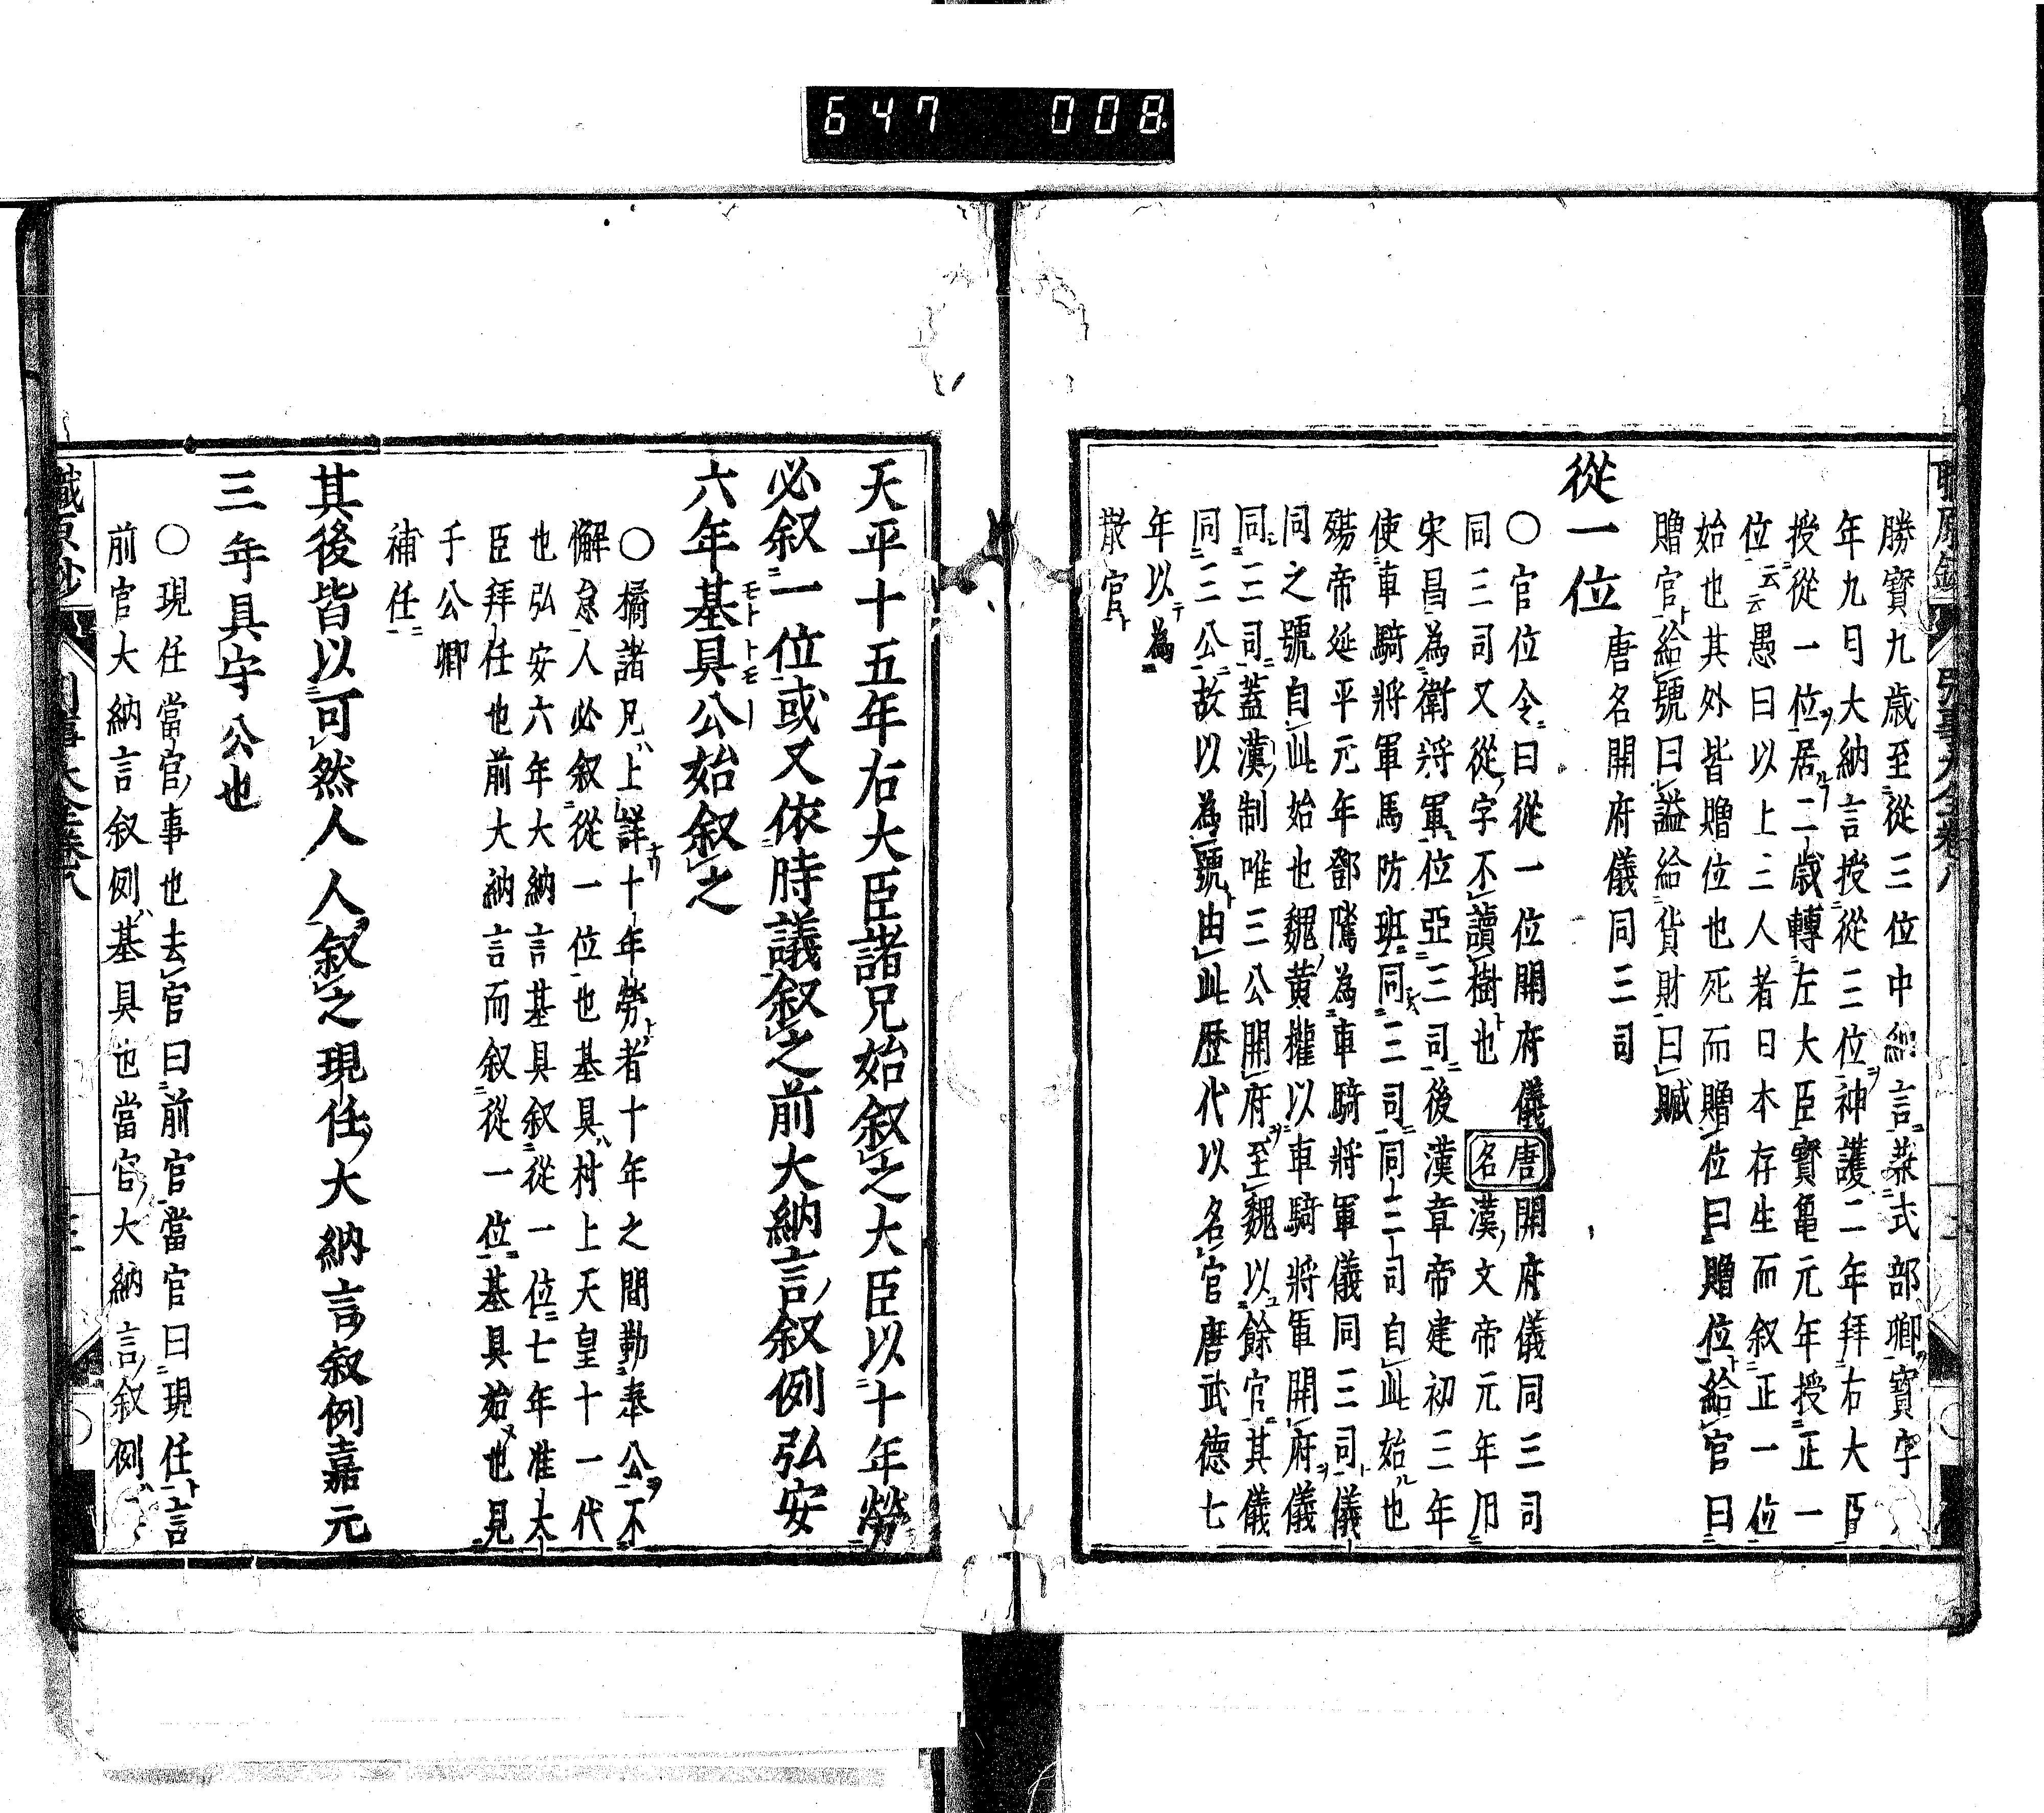 647 008
勝寳九歳至從三位中納言兼式部卿寳字八
年九月大納言授從三位神護二年拜右大臣
授從一位居二歳轉左大臣寳亀元年授正一
位云云愚曰以上三人者日本存生而叙正一位
始也其外皆贈位也死而贈位曰贈位給官曰
贈官給號曰謚給貨財曰賦
從一位
唐名開府儀同三司
〇官位令曰從一位開府儀唐名開府儀同三司
同三司又從字不讀樹也 漢文帝元年用
宋昌為衛將軍位亞三司後漢章帝建初三年
使車騎將軍馬防班同三司同三司自此始也
殤帝延平元年鄧隲為車騎將軍儀同三司儀
同之號自此始也魏黄權以車騎將軍開府儀
同三司蓋漢制唯三公開府至魏以餘官其儀
同三公故以為號由此歴代以名官唐武德七
年以為
散官
天平十五年右大臣諸兄始叙之大臣以十年勞
必叙一位或又依時議叙之前大納言叙例弘安
六年基具公始叙之
モトトモ
〇橘諸兄ハ上詳ナリ十年勞ト者十年之間勤奉公不
懈怠人必叙從一位也基具ハ村上天皇十一代
也弘安六年大納言基具叙從一位七年准大
臣拜任也前大納言而叙從一位基具始也見
于公卿
補任
其後皆以可然人人叙之現任大納言叙例嘉元
三年具守公也
〇現任當官事也去官曰前官當官曰現任言
前官大納言叙例ハ基具也當官大納言叙例ハ